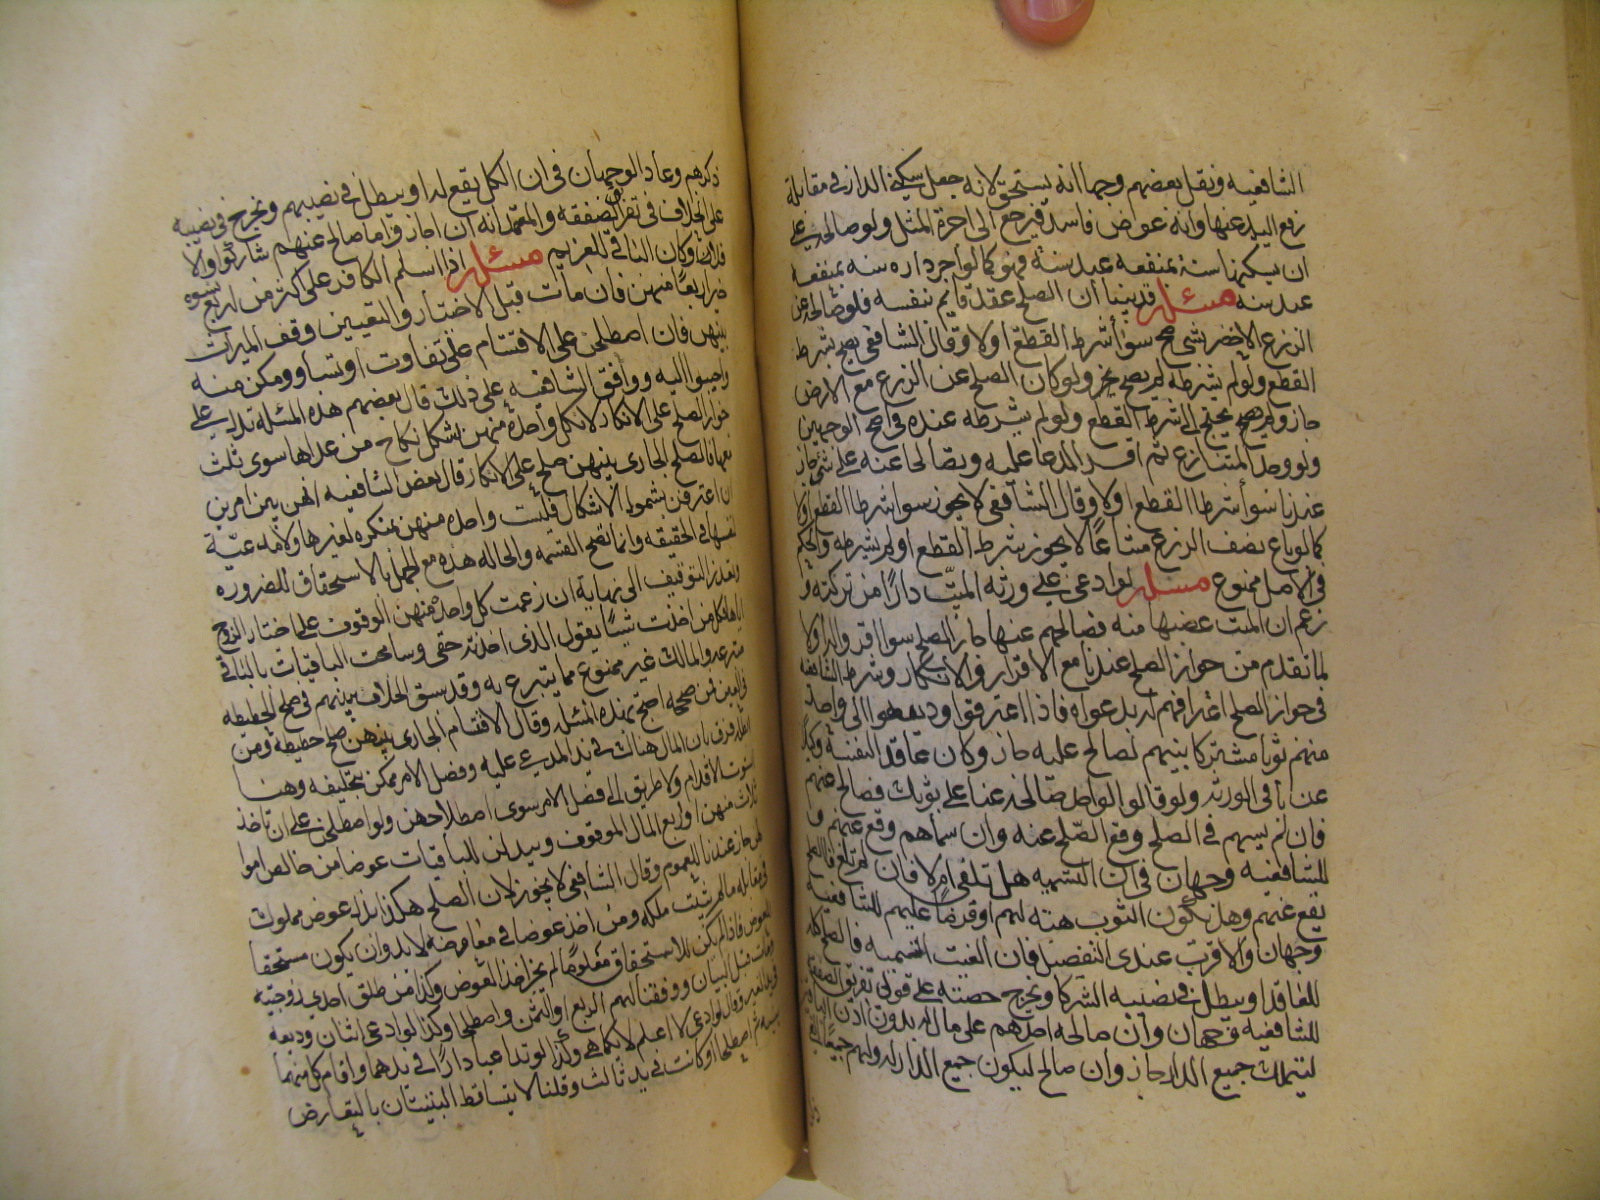 الشافعيه ونقل بعضهم وجها انه يستحق لانه جعل سكنى الدار في مقابلة
رفع اليد عنها وانه عوض فاسد فيرجع الى اجرة المثل ولو صالحه على
ان يسكنها سنة بمنفعه عبد سنة فهو كما لو اجر داره سنه بمنفعه
عبد سنه مسئلة قد بينا ان الصلح عقد قايم بنفسه فلو صالحه عن
الزرع الاخضر بشي صح سوأ شرط القطع اولا وقال الشافعي يصح بشرط
القطع ولو لم يشرطه لم يصح ولو كان الصلح عن الزرع مع الارض
جاز ولم يحتج الى شرط القطع ولو لم يشرطه عنده في اصح الوجهين
ولو وجد المتنازع ثم اقر المدعا عليه وتصالحا عنه على شي جاز
عندنا سوأ شرطا القطع اولا وقال الشافعي لا يجوز سوا شرطا القطع اولا
كما لو باع نصف الزرع مشاعًا لا يجوز شرط القطع او لم يشرطه والحكم
في الاصل ممنوع مسئلة لو ادعى على ورثه الميّت دارًا من تركته و
زعم ان الميت غصبها منه فصالحهم عنها جاز الصلح سوا اقروا له اولا
لما تقدم من جواز الصلح عندنا مع الاقرار والانكار وشرط الشافعيه
في جواز الصلح اعترافهم له بدعواه فاذا اعترفوا ودفعوا الى واحد
منهم ثوبا مشتركا بينهم ليصالح عليه جاز وكان عاقدا لنفسه ووكيلا
عن باقي الورثه ولو قالوا لواحد صالحه عنا على ثوبك فصالح عنهم
فان لم يسمهم في الصلح وقع الصّلح عنه وان سماهم وقع عنهم و
للشافعيه وجهان في ان التسميه هل تلغى ام لا فان لم تلغ فالصلح
يقع عنهم وهل يكون الثوب هبة لهم او قرضًا عليهم للشافعية
وجهان والاقرب عندى التفصيل فان الغيت التسميه فالصلح كله
للعاقد او يبطل في نصيب الشركا ويخرج حصته على قولى تفريق الصفقه
للشافعيه وجهان وان صالحه احدهم على مال له بدون اذن الباقين
ليتملك جميع الدار جاز وان صالح ليكون جميع الدار له ولهم جميعًا
ذكرهم وعاد الوجهان في ان الكل يقع له او يبطل في نصيبهم ويخرج في نصيبه
على الخلاف في تفريق الصفقه والمعتمد انه ان اجازوا ما صالح عنهم شاركوا والا
فلا وكان الباقي للغريم مسئله اذا اسلم الكافر على اكثر من اربع نسوه
خير اربعًا منهن فان مات قبل الاختيار والتعيين وقف الميراث
بينهن فان اصطلحن على الاقتسام على تفاوت او تساو ومكن منه
واجيبوا اليه ووافق الشافعيه على ذلك قال بعضهم هذه المسئله تدل على
جواز الصلح على الانكار لان كل واحدة منهن تنكر نكاح من عداها سوى ثلث
معها فالصلح الجارى بينهن صلح على الانكار قال بعض الشافعيه انهن بين امرين
ان اعترفن بشمول الاشكال فليست واحده منهن منكره لغيرها ولا مدعيّة
لنفسها في الحقيقه وانما تصح القسمه والحاله هذه مع الجهل بالاستحقاق للضروره
وتعذر التوقيف الى نهاية ان زعمت كل واحدة منهن الوقوف على اختيار الزوج
اياها فكل من اخذت شيئًا يقول الذى اخذته حقى وسامحت الباقيات بالباقي
متبرعه والمالك غير ممنوع مما يتبرع به وقد سبق الخلاف بينهم في صلح الحطيطه
في العين فمن صححه احتج بهذه المسئله وقال الاقتسام الجارى بينهن صلح حطيطه ومن
ابطله فرق بان المال هناك في يد المدعى عليه وفصل الامر ممكن بتحليفه وهنا
استوت الاقدام ولا طريق الى فصل الامر سوى اصطلاحهن ولو اصطلحن على ان تاخذ
ثلاث منهن او اربع المال الموقوف ويبدلن للباقيات عوضا من خالص اموا
لهن جاز عندنا للعموم وقال الشافعي لا يجوز لان الصلح هكذا بذل عوض مملوك
في مقابله ما لم يثبت ملكه ومن اخذ عوضا في معاوضه لا بد وان يكون مستحقا
للمعوض فاذا لم يكن للاستحقاق معلومًا لم يجز اخذ العوض وكذا من طلق احدى زوجتيه
ومات قبل البيان ووقفنا لهم الربع او الثمن واصطلحا وكذا لو ادعى اثنان وديعه
في يد الغير وقال المودع لا اعلم لايكما هي وكذا لو تداعيا دارًا في يدهما واقام كل منهما
بينه ثم اصطلحا او كانت في يد ثالث وقلنا لا يتساقط البينتان بالتعارض